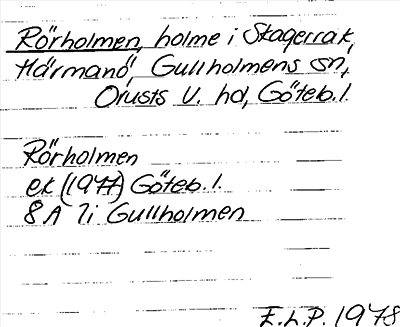 Rörholmen, holme i Skagerrak,
Härmanö, Gullholmens sn,
Orusts V. hd, Göteb. l.
Rörholmen
ek (1977) Göteb. l.
8A 7i Gullholmen
E.L.P. 1978